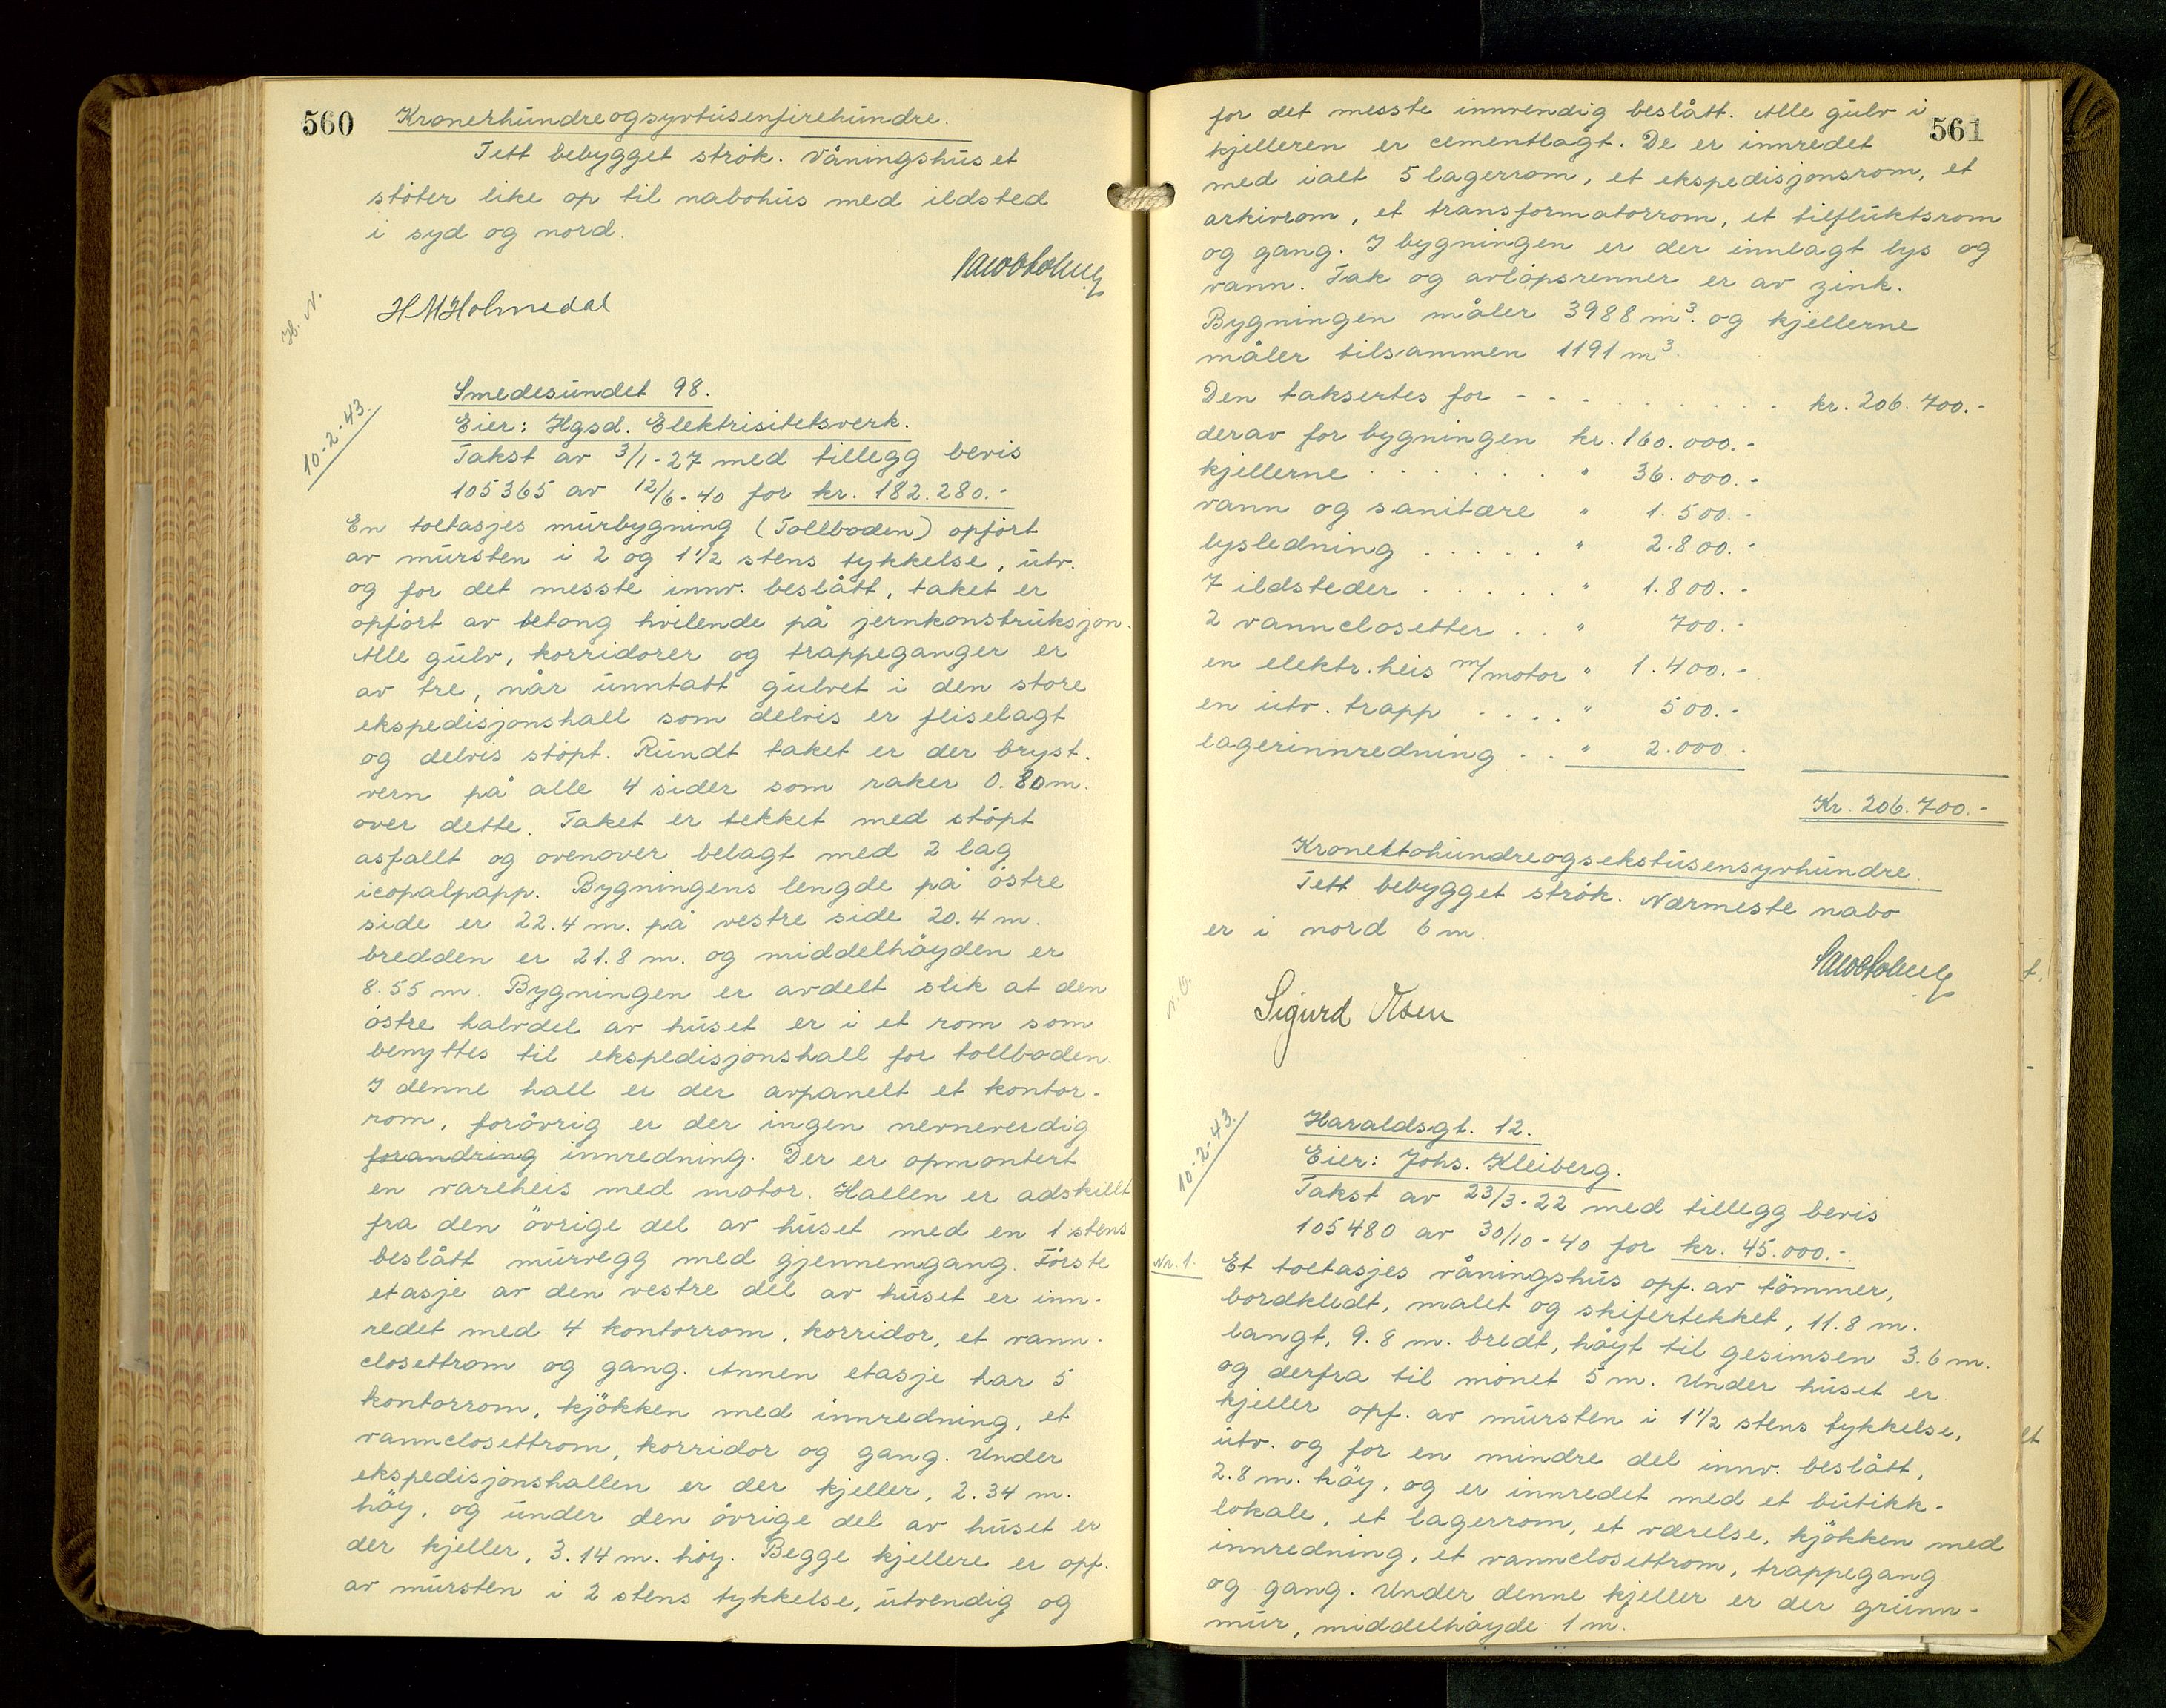 560
Kronerhundreogsyvtusenfirehundre.
Tett bebygget strök. Våningshuset
stöter like op til nabohus med ildsted
i syd og nord.
H M Holmedal
H. N.
10-2-43.
Smedesundet 98.
Eier: Hgsd. Elektrisitetsverk.
Takst av 3/1-27 med tillegg bevis
105365 av 12/6-40 for kr. 182.280.-
En toetasjes murbygning (Tollboden) opfört
av mursten i 2 og 1 1/2 stens tykkelse, utv.
og for det messte innv. beslått, taket er
opfört av betong hvilende på jernkonstruksjon.
Alle gulv, korridorer og trappeganger er
av tre, når unntatt gulvet i den store
ekspedisjonshall som delvis er fliselagt
og delvis stöpt. Rundt taket er der bryst-
vern på alle 4 sider som raker 0.80m.
over dette. Taket er tekket med stöpt
asfallt og ovenover belagt med 2 lag
icopalpapp. Bygningens lengde på östre
side er 22.4 m. på vestre side 20.4 m.
bredden er 21.8 m. og middelhöyden er
8.55 m. Bygningen er avdelt slik at den
östre halvdel av huset er i et rom som
benyttes til ekspedisjonshall for tollboden.
I denne hall er der avpanelt et kontor-
rom, forövrig er der ingen nevneverdig
forandring innredning. Der er opmontert
en vareheis med motor. Hallen er adskillt
fra den övrige del av huset med en 1 stens
beslått murvegg med gjennemgang. Förste
etasje av den vestre del av huset er inn-
redet med 4 kontorrom, korridor, et vann-
closettrom og gang. Annen etasje har 5
kontorrom, kjökken med innredning, et
vannclosettrom, korridor og gang. Under
ekspedisjonshallen er der kjeller, 2.34 m.
höy, og under den övrige del av huset er
der kjeller, 3.14 m. höy. Begge kjellere er opf.
av mursten i 2 stens tykkelse, utvendig og
561
for det messte innvendig beslått. Alle gulv i
kjelleren er cementlagt. De er innredet
med ialt 5 lagerrom, et ekspedisjonsrom, et
arkivrom, et transformatorrom, et tilfluktsrom
og gang. I bygningen er der innlagt lys og
vann. Tak og avlöpsrenner er av zink.
Bygningen måler 3988 m³. og kjellerne
måler tilsammen 1191 m³.
Den taksertes for - - - . . . . . . . kr. 206.700.-
derav for bygningen kr. 160.000.-
kjellerne . . . . . . " 36.000.-
vann og sanitære " 1.500.-
lysledning . . . . . " 2.800.-
7 ildsteder . . . . . " 1.800.-
2 vannclosetter . . " 700.-
en elektr. heis m/motor " 1.400.-
en utv. trapp . . . . " 500.-
lagerinnredning . . " 2.000.
Kr. 206.700.-
Kronettohundreogsekstusensyvhundre.
Tett bebygget strök. Nærmeste nabo
er i nord 6 m.
Sigurd Olsen
10-2-43.
Haraldsgt. 12.
Eier: Johs. Kleiberg.
Takst av 23/3-22 med tillegg bevis
105480 av 30/10-40 for kr. 45.000.-
Nr. 1. Et toetasjes våningshus opf. av tömmer,
bordkledt, malet og skifertekket, 11.8 m.
langt, 9.8 m. bredt, höyt til gesimsen 3.6 m.
og derfra til mönet 5 m. Under huset er
kjeller opf. av mursten i 1 1/2 stens tykkelse,
utv. og for en mindre del innv. beslått,
2.8 m. höy, og er innredet med et butikk-
lokale, et lagerrom, et værelse, kjökken med
innredning, et vannclosettrom, trappegang
og gang. Under denne kjeller er der grunn-
mur, middelhöyde 1 m.